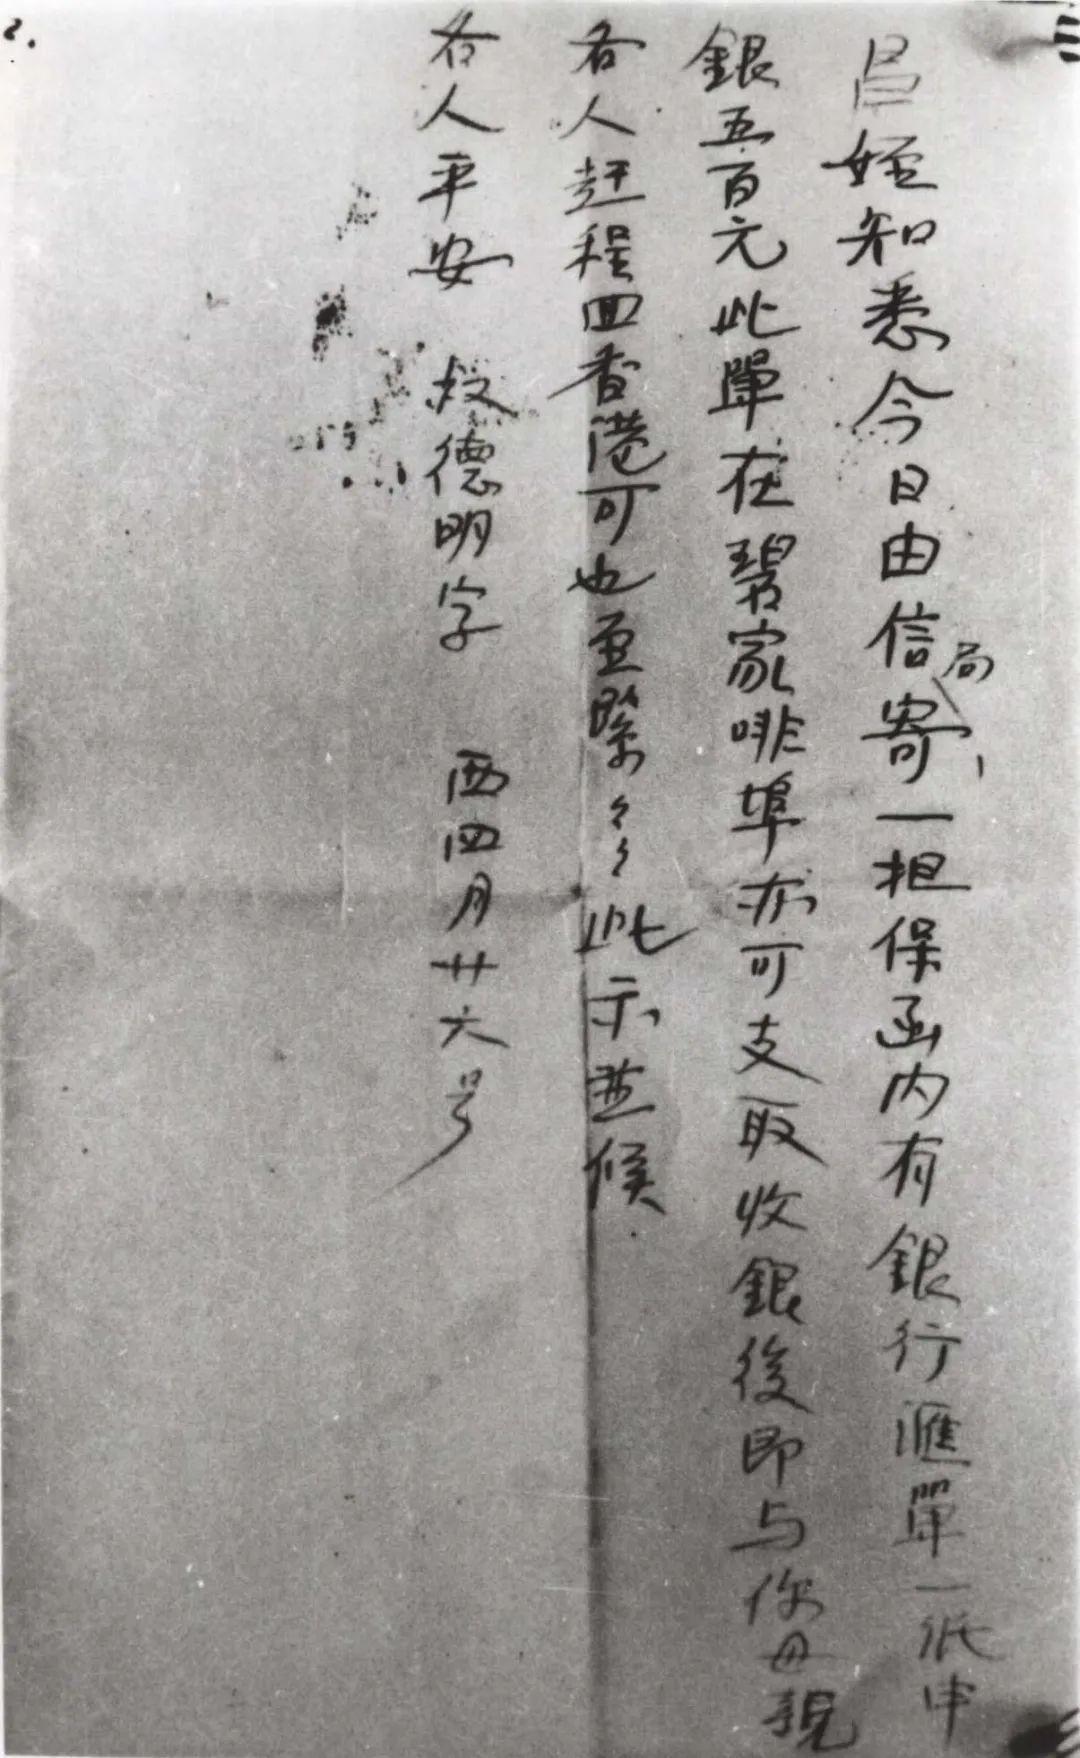 昌姪知悉今日由信局寄一担保函内有銀行滙單一紙申
銀五百元此單在碧家啡埠亦可支取收銀後即与你母親
各人赶程回香港可也至緊〻〻此示並候
各人平安　叔德明字　西四月廿六号
2.